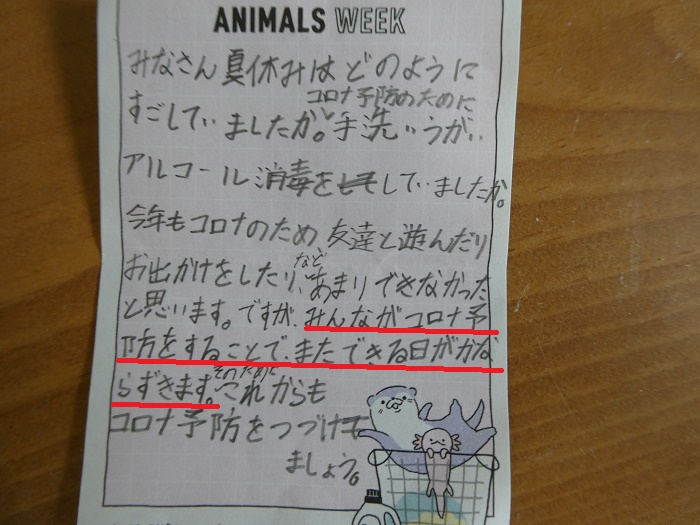 ANIMALS WEEK
みなさん夏休みはどのように
コロナ予防のために
すごしていましたか。手洗いうがい
アルコール消毒をしていましたか。
今年もコロナのため友達と遊んだり
など
お出かけをしたり、あまりできなかった
と思います。ですが、みんながコロナ予
防をすることで、またできる日がかな
そのために
らずきます。これからも
コロナ予防をつづけ
ましょう。